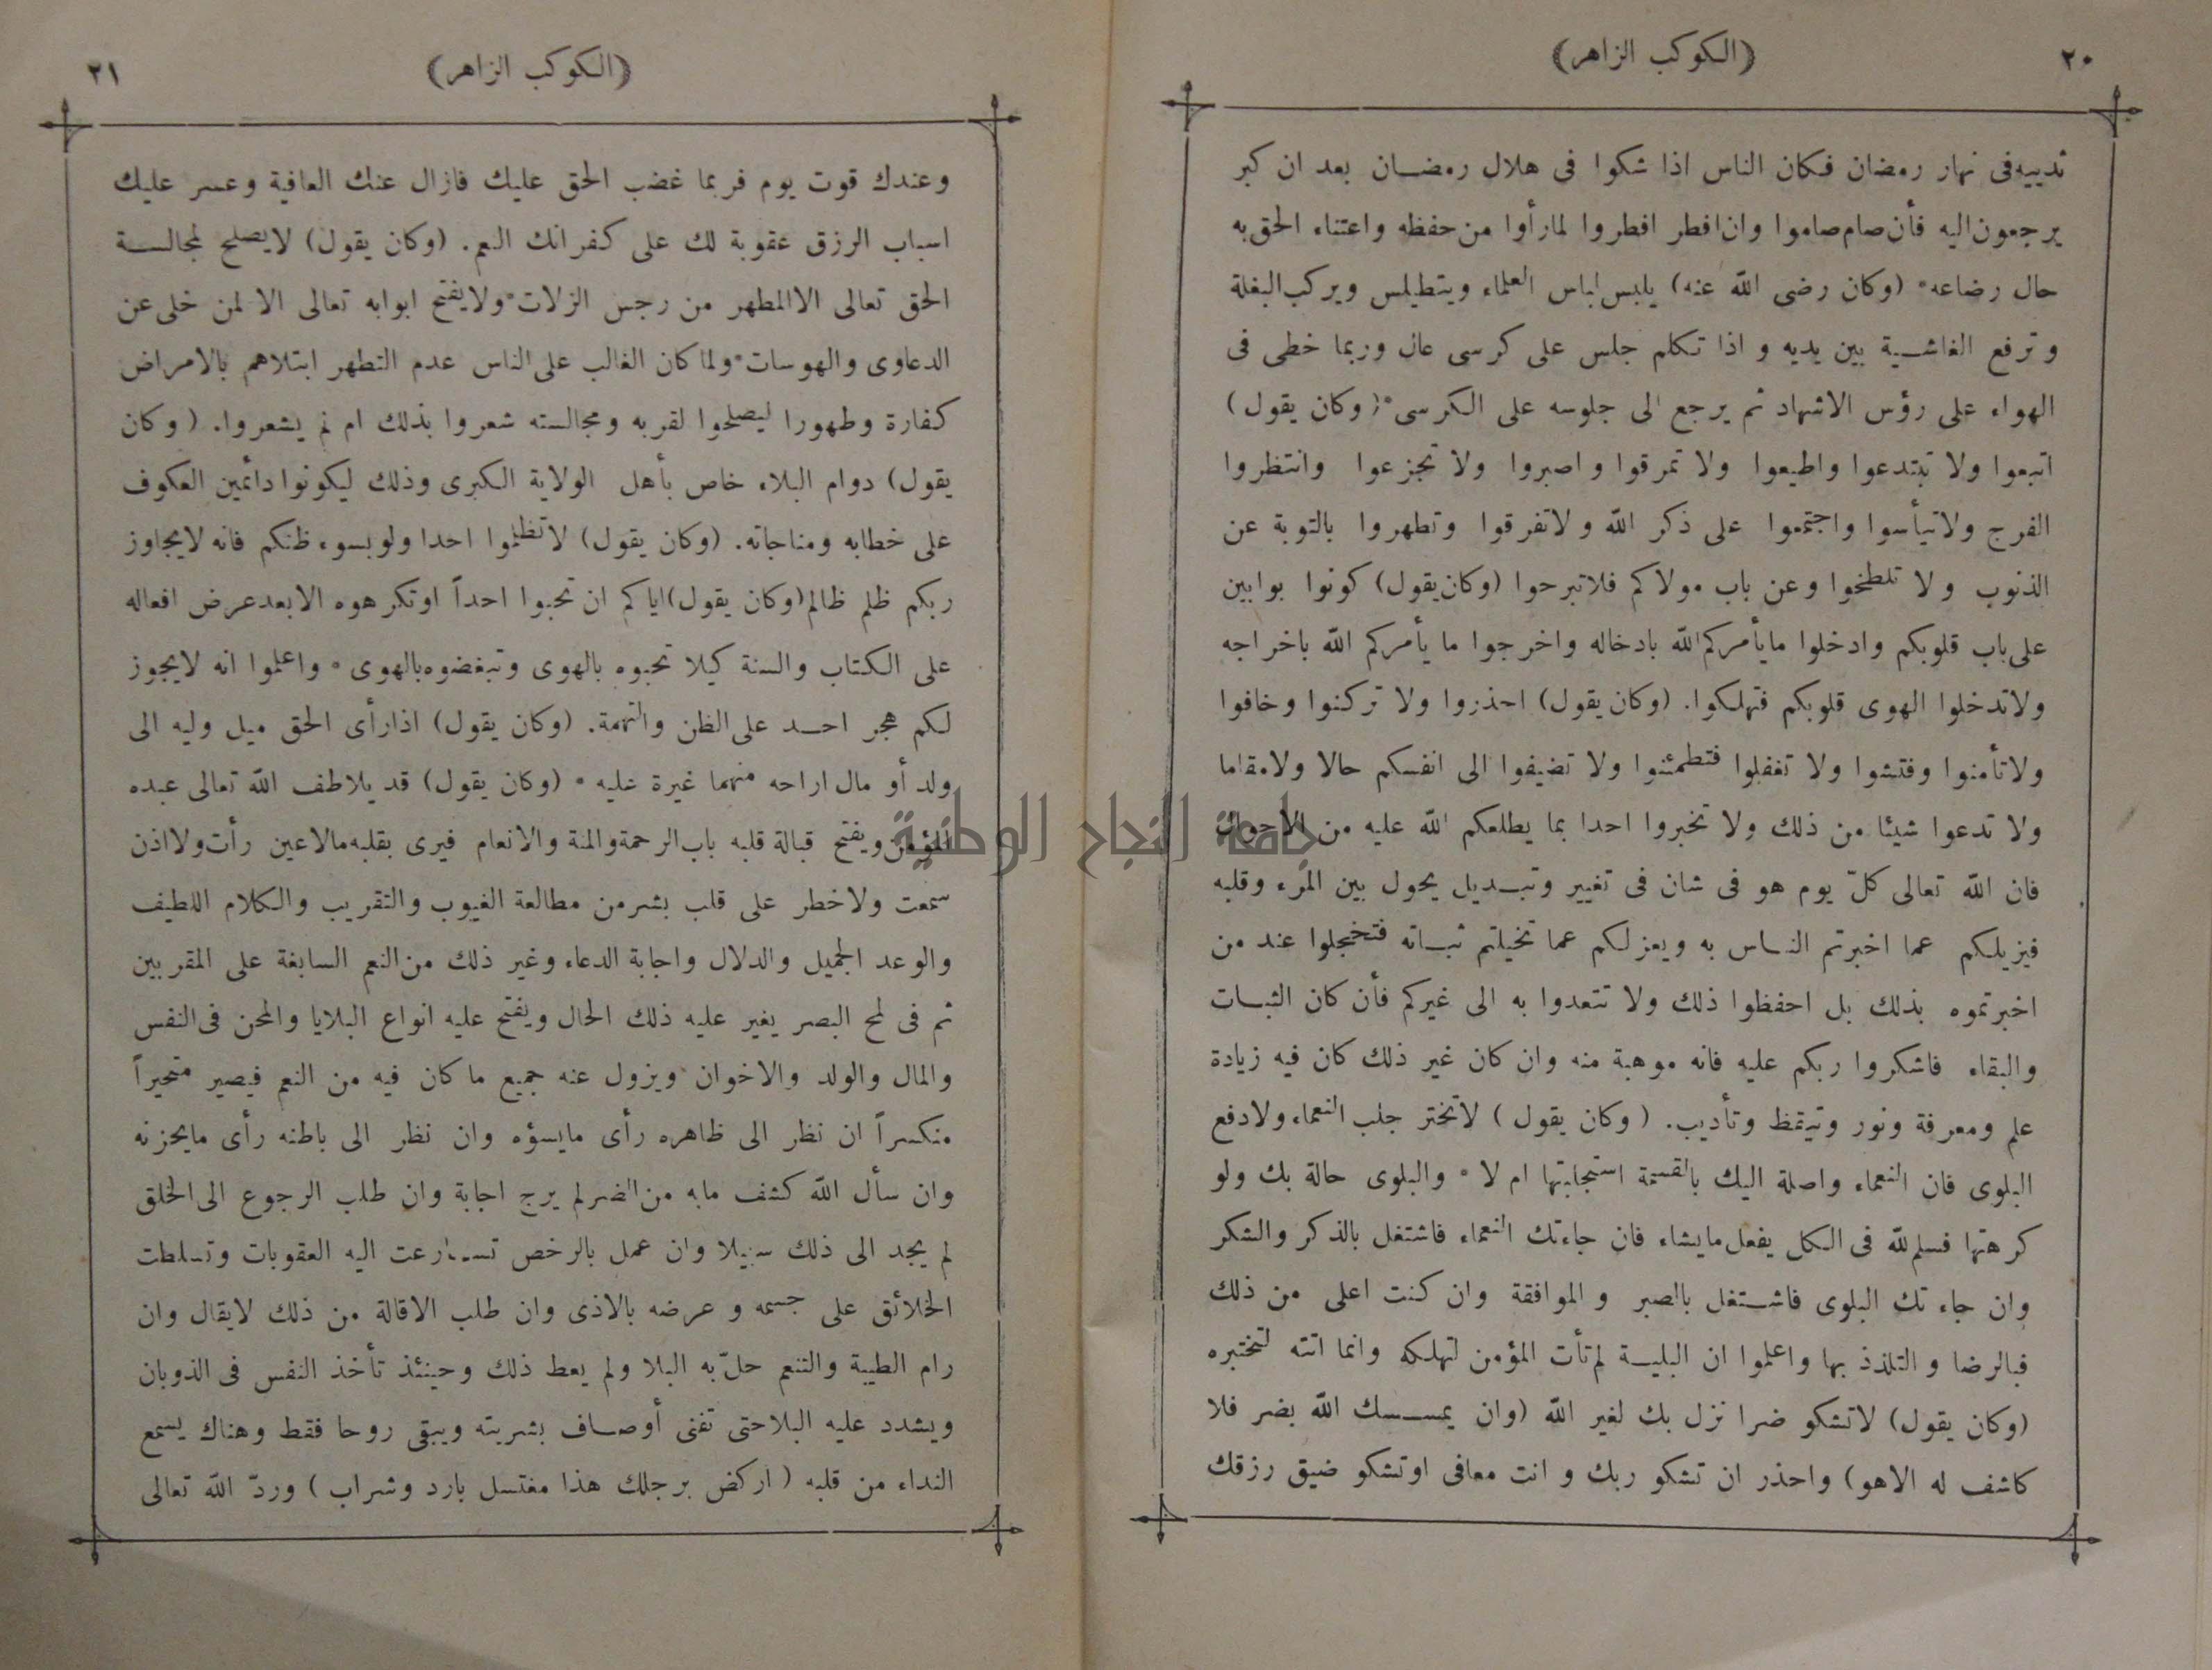 ٢٠
(الكوكب الزاهر)
ثدييه فى نهار رمضان فكان الناس اذا شكوا فى هلال رمضان بعد ان كبر
يرجعون اليه فأن صام صاموا وان افطر افطروا لما رأوا من حفظه واعتناء الحق به
حال رضاعه * (وكان رضى الله عنه) يلبس لباس العلماء ويتطيلس ويركب البغلة
وترفع الغاشية بين يديه و اذا تكلم جلس على كرسى عال وربما خطى فى
الهواء على رؤس الاشهاد ثم يرجع الى جلوسه على الكرسى * (وكان يقول)
اتبعوا ولا تبتدعوا واطيعوا ولا تمرقوا واصبروا ولا تجزعوا وانتظروا
الفرج ولا تيأسوا واجتمعوا على ذكر الله ولا تفرقوا وتطهروا بالتوبة عن
الذنوب ولا تلطخوا وعن باب مولاكم فلا تبرحوا (وكان يقول) كونوا بوابين
على باب قلوبكم وادخلوا ما يأمركم الله بادخاله واخرجوا ما يأمركم الله باخراجه
ولا تدخلوا الهوى قلوبكم فتهلكوا. (وكان يقول) احذروا ولا تركنوا وخافوا
ولا تأمنوا وفتشوا ولا تغفلوا فتطمئنوا ولا تضيفوا الى انفسكم حالا ولا مقاما
ولا تدعوا شيئا من ذلك ولا تخبروا احدا بما يطلعكم الله عليه من الاحوال
فان الله تعالى كلّ يوم هو فى شان فى تغيير وتبديل يحول بين المرء وقلبه
فيزيلكم عما اخبرتم الناس به ويعزلكم عما تخيلتم ثباته فتخجلوا عند من
اخبرتموه بذلك بل احفظوا ذلك ولا تتعدوا به الى غيركم فأن كان الثبات
والبقاء فاشكروا ربكم عليه فانه موهبة منه وان كان غير ذلك كان فيه زيادة
علم ومعرفة ونور وتيقظ وتأديب. (وكان يقول) لا تختر جلب النعماء ولا دفع
البلوى فان النعماء واصلة اليك بالقسمة استجلبتها ام لا * والبلوى حالة بك ولو
كرهتها فسلم لله فى الكل يفعل ما يشاء فان جاءتك النعماء فاشتغل بالذكر والشكر
وان جاءتك البلوى فاشتغل بالصبر و الموافقة وان كنت اعلى من ذلك
فبالرضا و التلذذ بها واعلموا ان البلية لم تأت المؤمن لتهلكه وانما اتته لتختبره
(وكان يقول) لا تشكو ضرا نزل بك لغير الله (وان يمسسك الله بضر فلا
كاشف له الا هو) واحذر ان تشكو ربك و انت معافى او تشكو ضيق رزقك
(الكوكب الزاهر)
٢١
وعندك قوت يوم فربما غضب الحق عليك فازال عنك العافية وعسر عليك
اسباب الرزق عقوبة لك على كفرانك النعم. (وكان يقول) لا يصلح لمجالسة
الحق تعالى الا المطهر من رجس الزلات * ولا يفتح ابوابه تعالى الا لمن خلى عن
الدعاوى والهوسات * ولما كان الغالب على الناس عدم التطهر ابتلاهم بالامراض
كفارة وطهورا ليصلحوا لقربه ومجالسته شعروا بذلك ام لم يشعروا. (وكان
يقول) دوام البلاء خاص بأهل الولاية الكبرى وذلك ليكونوا دائمين العكوف
على خطابه ومناجاته. (وكان يقول) لا تظلموا احدا ولو بسوء ظنكم فانه لا يجاوز
ربكم ظلم ظالم (وكان يقول) اياكم ان تحبوا احداً او تكرهوه الا بعد عرض افعاله
على الكتاب والسنة كيلا تحبوه بالهوى وتبغضوه بالهوى * واعلموا انه لا يجوز
لكم هجر احد على الظن والتهمة. (وكان يقول) اذا رأى الحق ميل وليه الى
ولد أو مال اراحه منهما غيرة عليه * (وكان يقول) قد يلاطف الله تعالى عبده
المؤمن ويفتح قبالة قلبه باب الرحمة والمنة والانعام فيرى بقلبه مالا عين رأت ولا اذن
سمعت ولا خطر على قلب بشر من مطالعة الغيوب والتقريب والكلام اللطيف
والوعد الجميل والدلال واجابة الدعاء وغير ذلك من النعم السابغة على المقربين
ثم فى لمح البصر يغير عليه ذلك الحال ويفتح عليه انواع البلايا والمحن فى النفس
والمال والولد والاخوان ويزول عنه جميع ما كان فيه من النعم فيصير متحيراً
منكسراً ان نظر الى ظاهره رأى ما يسؤه وان نظر الى باطنه رأى ما يحزنه
وان سأل الله كشف ما به من الضر لم يرج اجابة وان طلب الرجوع الى الخلق
لم يجد الى ذلك سبيلا وان عمل بالرخص تسارعت اليه العقوبات وتسلطت
الخلائق على جسمه و عرضه بالاذى وان طلب الاقالة من ذلك لا يقال وان
رام الطيبة والتنعم حلّ به البلا ولم يعط ذلك وحينئذ تأخذ النفس فى الذوبان
ويشدد عليه البلا حتى تفنى أوصاف بشريته ويبقى روحا فقط وهناك يسمع
النداء من قلبه (اركض برجلك هذا مغتسل بارد وشراب) وردّ الله تعالى
جامعة النجاح الوطنية